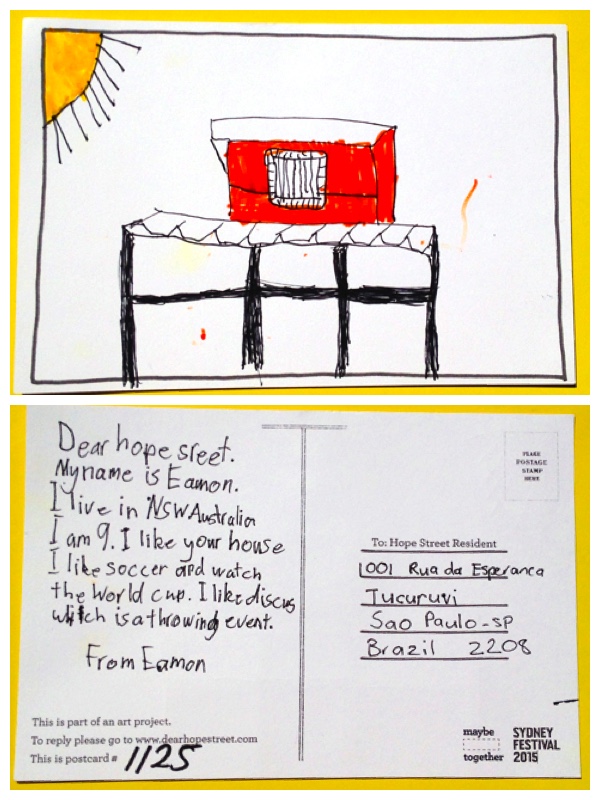 Dear hope sreet.
My name is Eamon.
I live in NSW Australia
I am 9. I like your house
I like soccer and watch
the World cup. I like discus
which is a throwing event.
From Eamon
This is part of an art project.
To reply please go to www.dearhopestreet.com
This is postcard # 1125
PLACE
POSTAGE
STAMP
HERE
To: Hope Street Resident
1001 Rua da Esperanca
Tucuruvi
Sao Paulo-SP
Brazil 2208
maybe
together
SYDNEY
FESTIVAL
2015